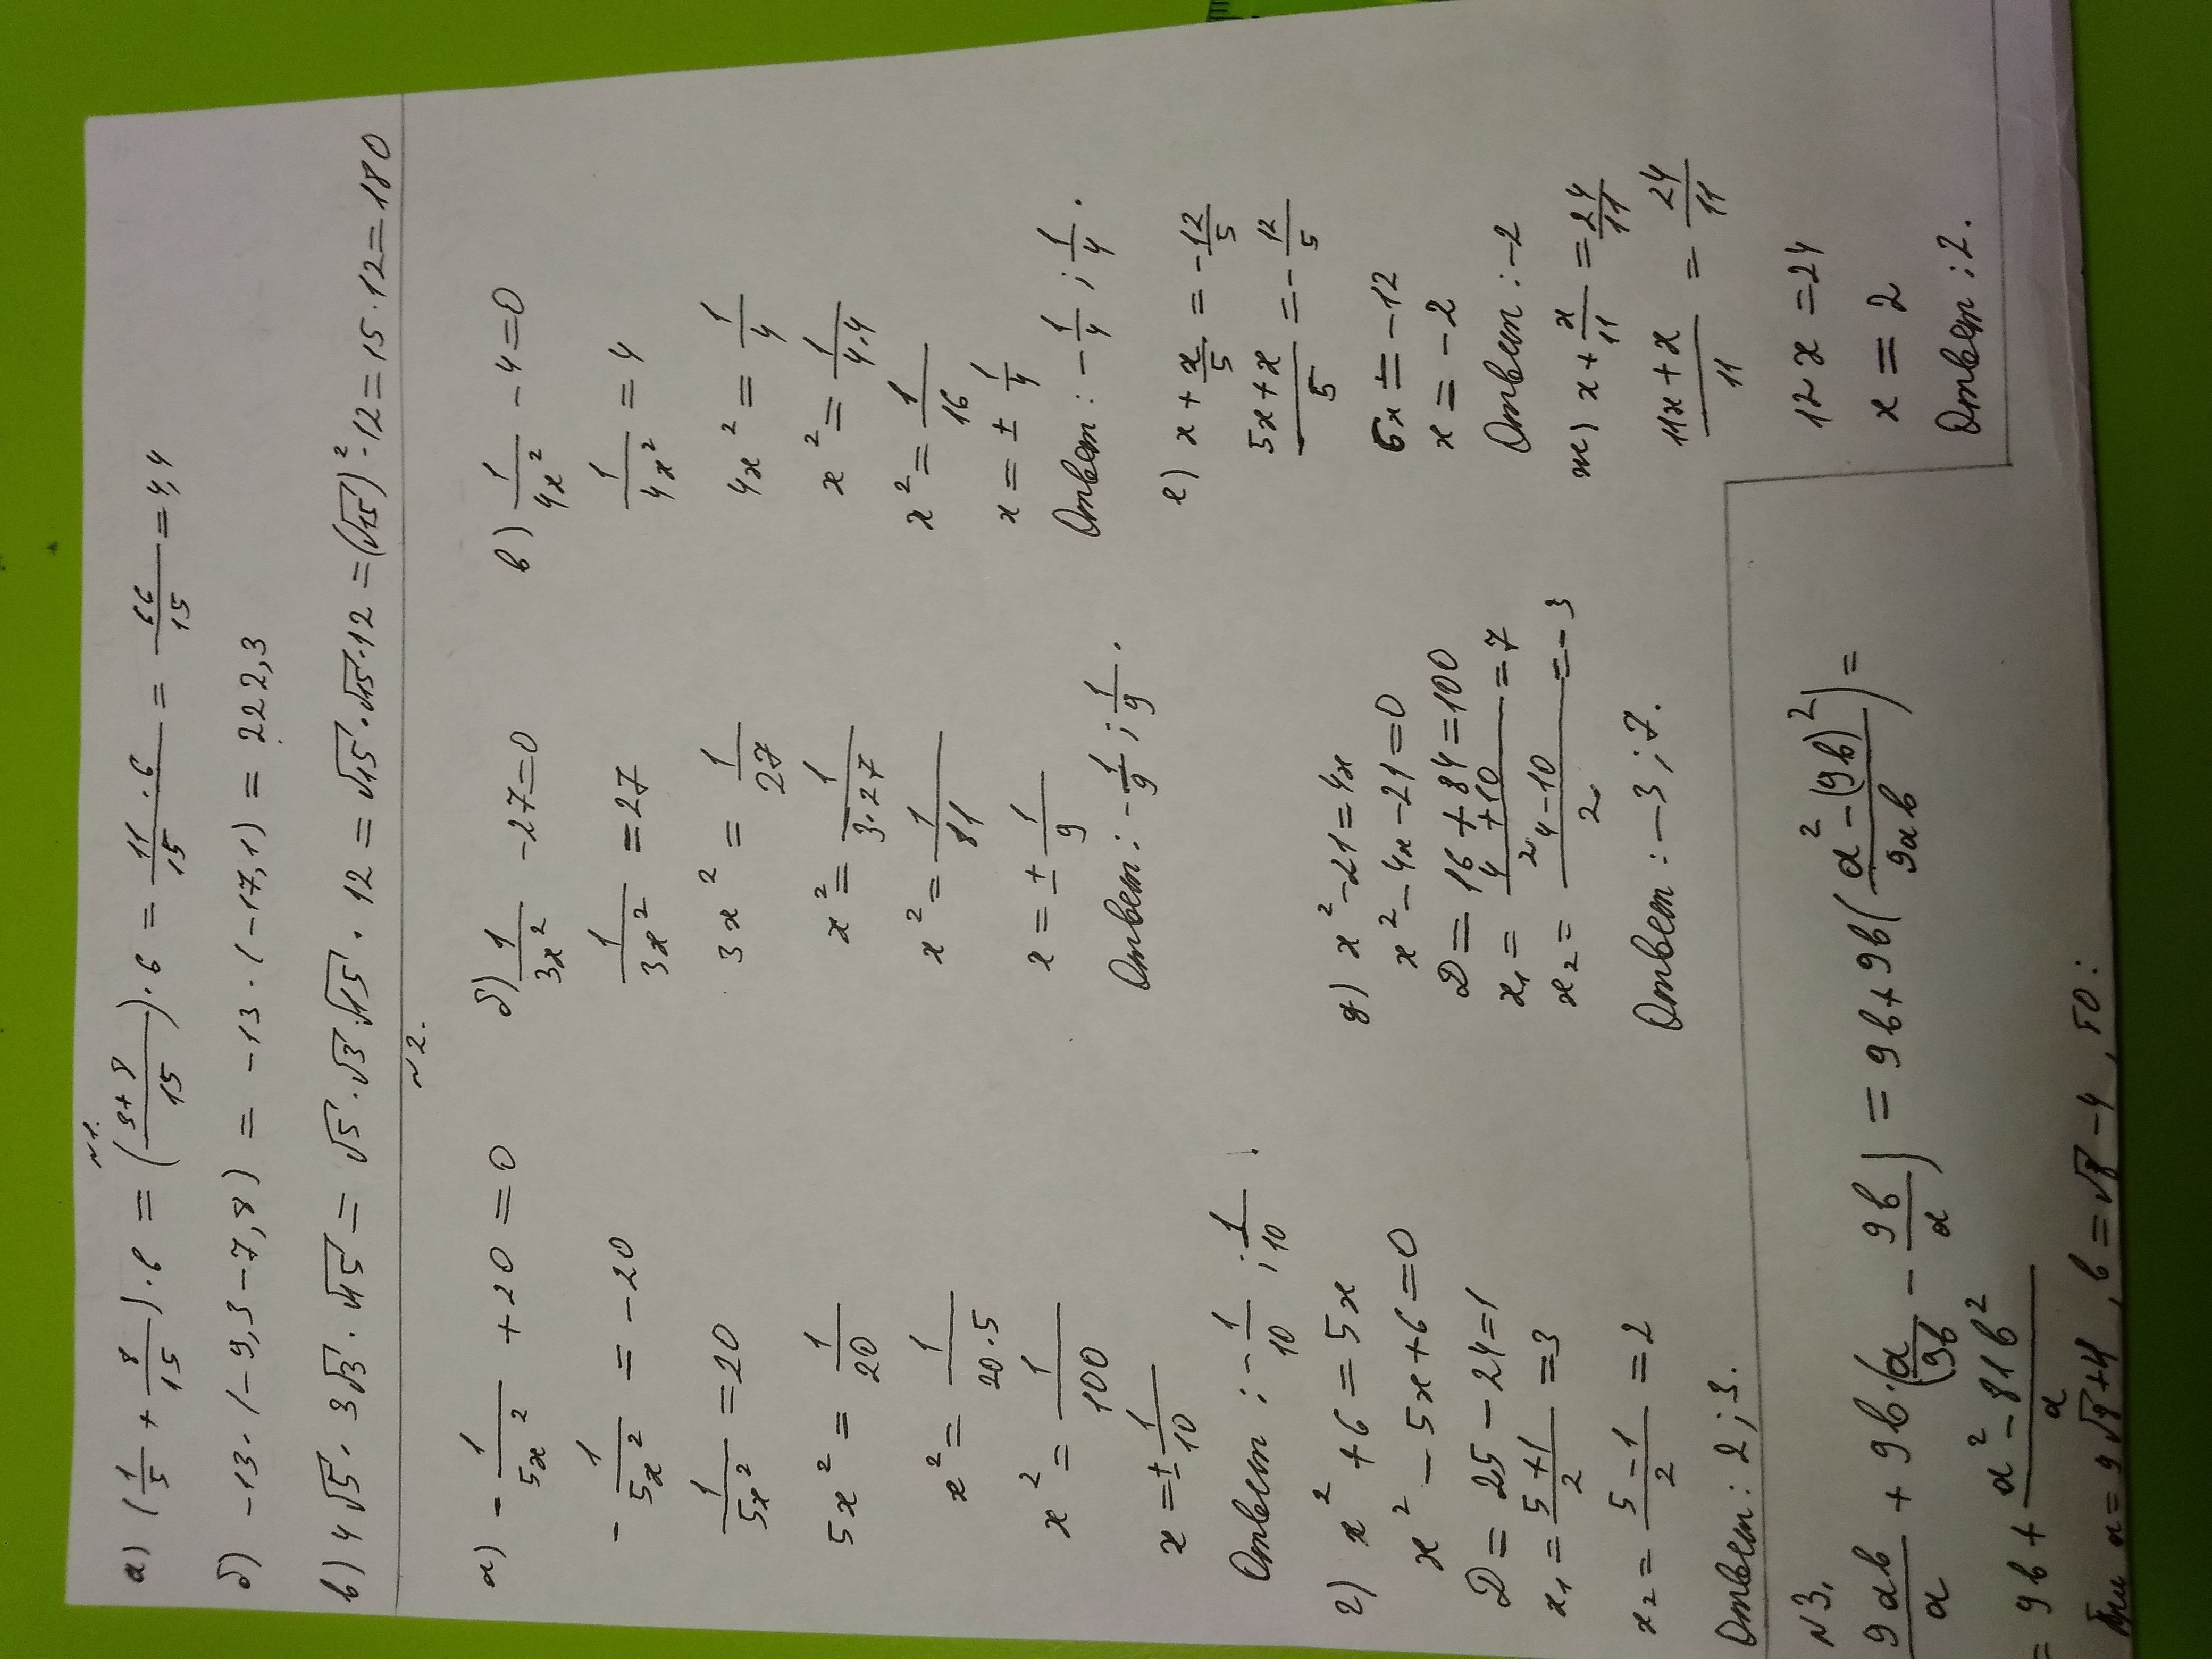 №1.
а) (1/5 + 8/15) · 6 = ((3+8)/15) · 6 = (11 · 6)/15 = 66/15 = 4,4
б) -13 · (-9,3 - 7,8) = -13 · (-17,1) = 222,3
в) 4√5 · 3√3 · √15 = √5 · √3 · √15 · 12 = √15 · √15 · 12 = (√15)² · 12 = 15 · 12 = 180
№2.
а) - 1/5x² + 20 = 0
- 1/5x² = -20
1/5x² = 20
5x² = 1/20
x² = 1/20·5
x² = 1/100
x = ± 1/10
Ответ: - 1/10 ; 1/10.
б) 1/3x² - 27 = 0
1/3x² = 27
3x² = 1/27
x² = 1/3·27
x² = 1/81
x = ± 1/9
Ответ: - 1/9 ; 1/9.
в) 1/4x² - 4 = 0
1/4x² = 4
4x² = 1/4
x² = 1/4·4
x² = 1/16
x = ± 1/4
Ответ: - 1/4 ; 1/4.
г) x² + 6 = 5x
x² - 5x + 6 = 0
D = 25 - 24 = 1
x₁ = (5+1)/2 = 3
x₂ = (5-1)/2 = 2
Ответ: 2; 3.
д) x² - 21 = 4x
x² - 4x - 21 = 0
D = 16 + 84 = 100
x₁ = (4+10)/2 = 7
x₂ = (4-10)/2 = -3
Ответ: -3; 7.
е) x + x/5 = - 12/5
(5x+x)/5 = - 12/5
6x = -12
x = -2
Ответ: -2
ж) x + x/11 = 24/11
(11x+x)/11 = 24/11
12x = 24
x = 2
Ответ: 2.
№3.
9ab/a + 9b · (a/9b - 9b/a) = 9b + 9b((a² - (9b)²)/9ab) =
= 9b + (a² - 81b²)/a
При a = 9√8+4, b = √8 - 4, то: